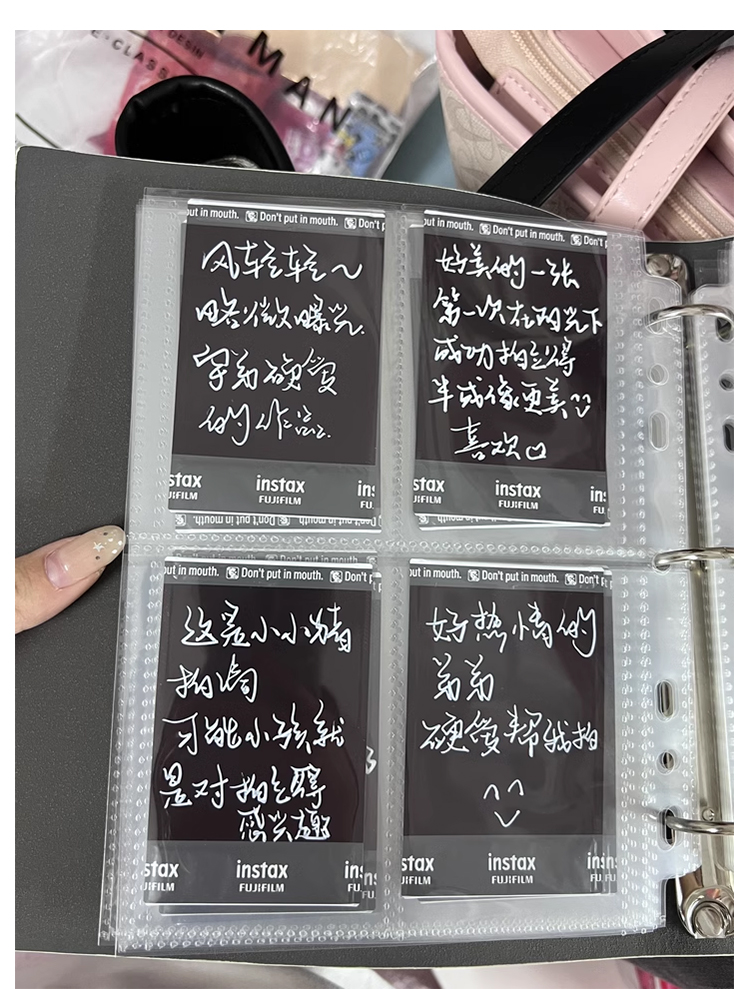 MAN
E·CLASS
DESIN
put in mouth. Don't put in mouth. Don't p
风轻轻~
略微曝光
字弟硬要
的作品.
stax instax ins
JIFILM FUJIFILM FU
put in mouth. Don't put in mouth. Don't
好美的一张
第一次在阳光下
成功拍立得
半成像更美
喜欢
stax instax in
JIFILM FUJIFILM FU
put in mouth. Don't put in mouth. Don't p
这是小小猜
拍的
可能小孩就
是对拍立得
感兴趣
stax instax ins
JIFILM FUJIFILM FU
put in mouth. Don't put in mouth. Don't p
好热情的
弟弟
硬要帮我拍
stax instax ins
JIFILM FUJIFILM FU